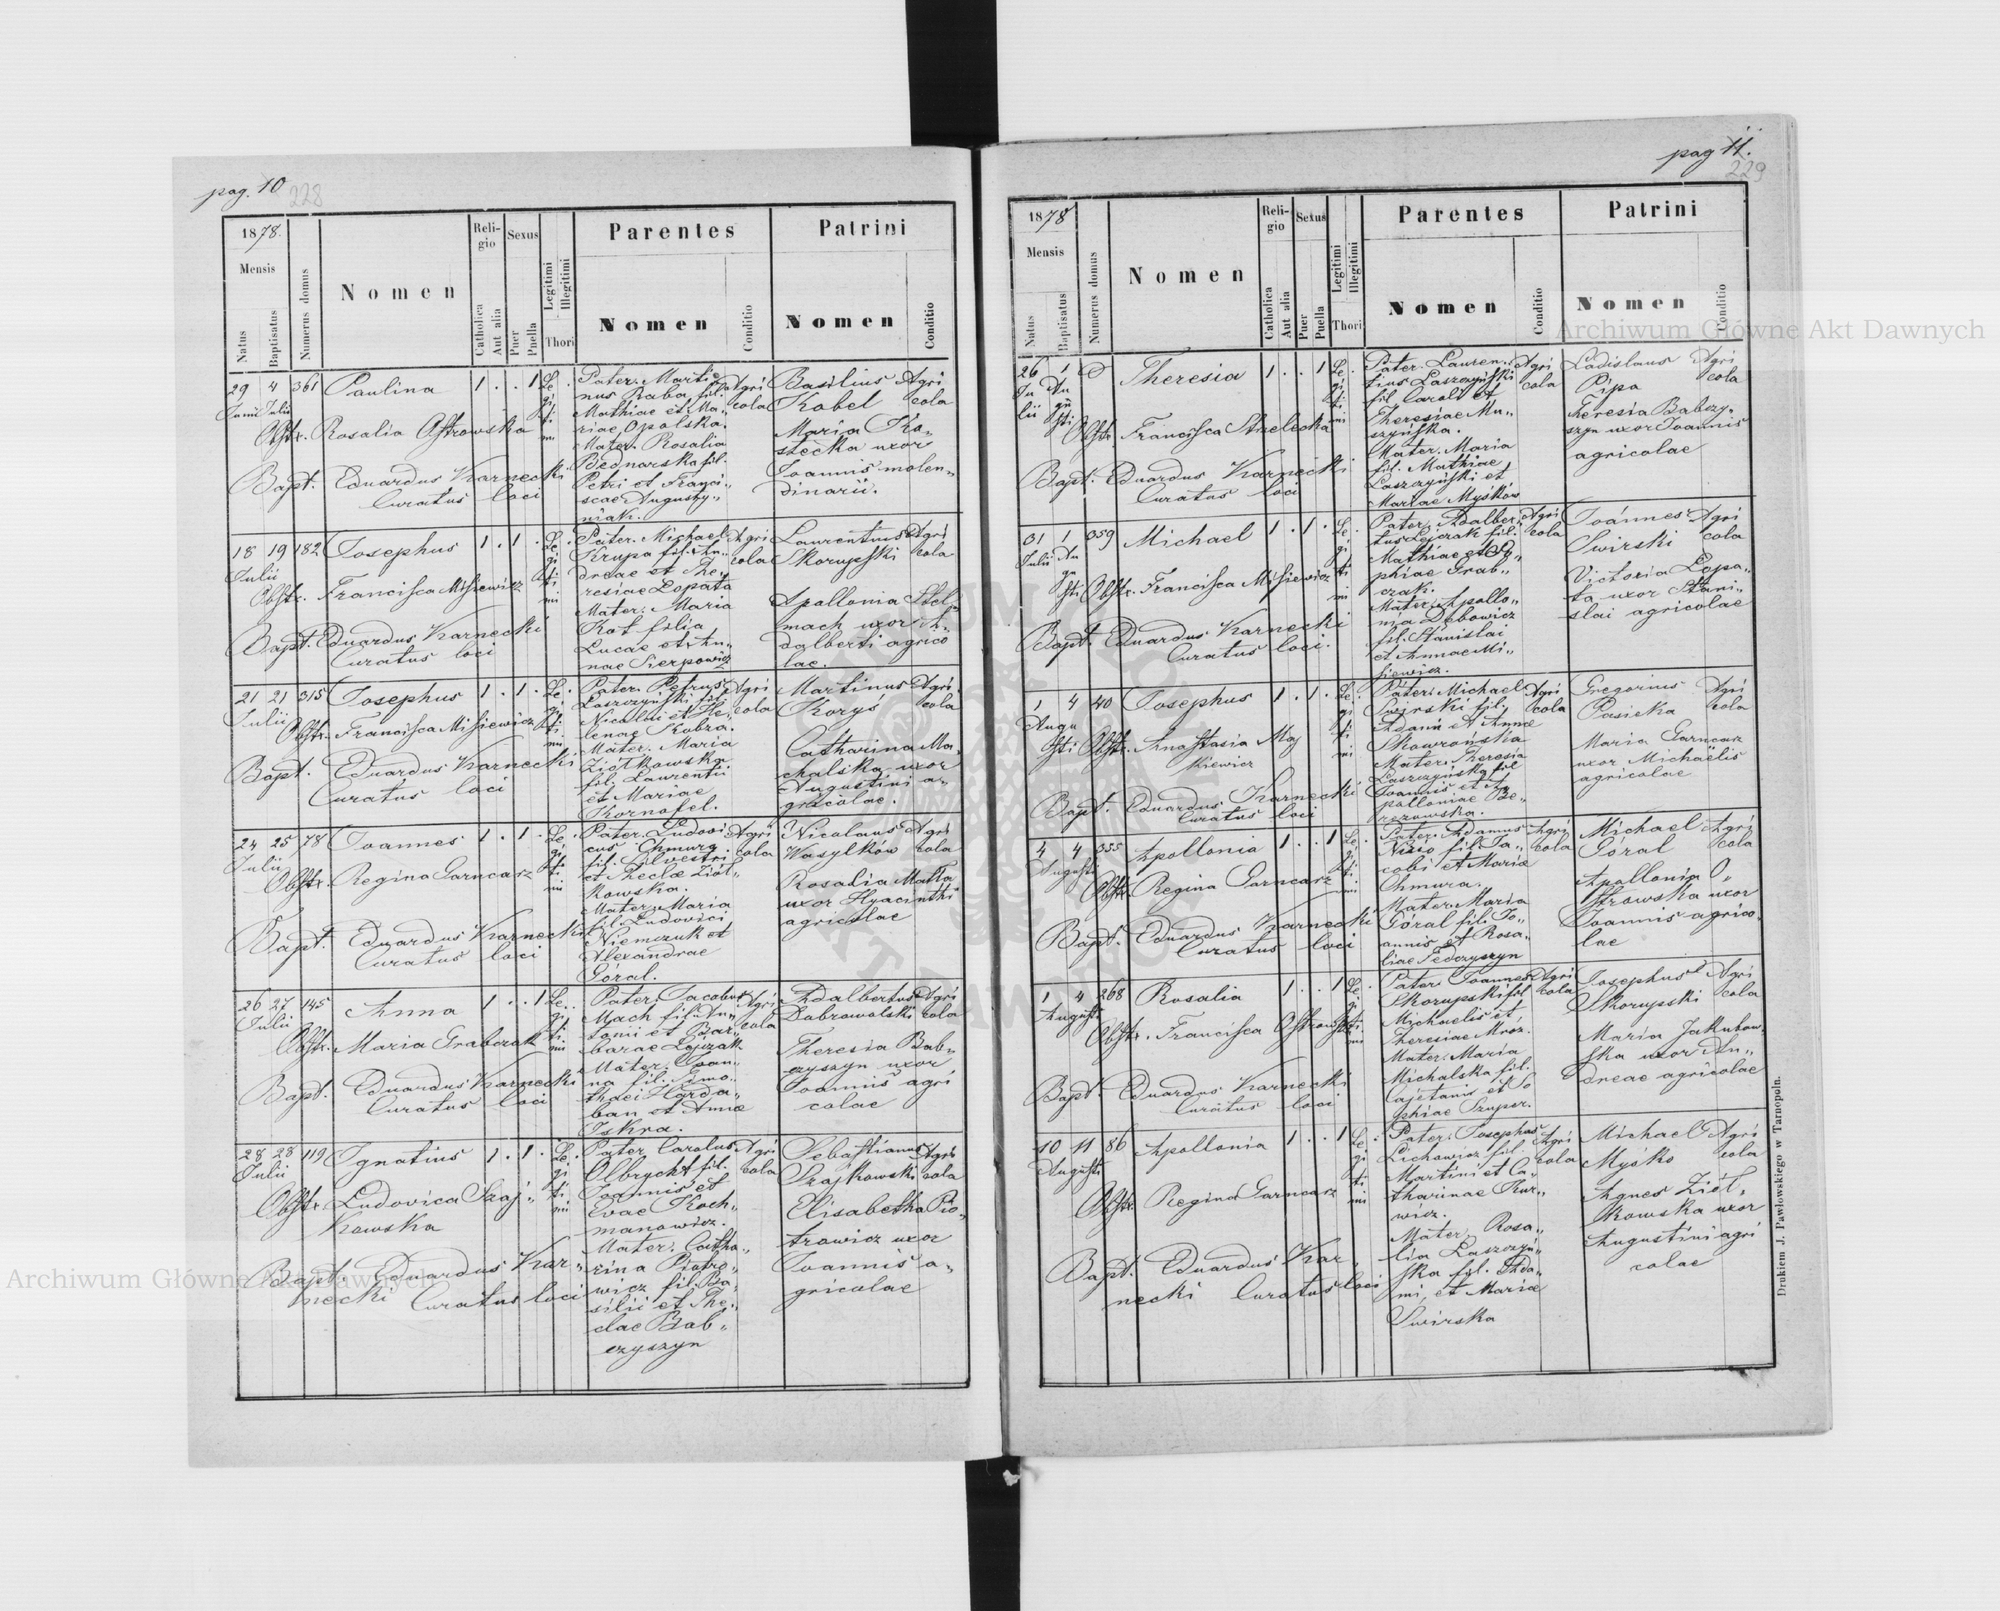 pag. 10
228
1878.
Mensis
Natus
Baptisatus
Numerus domus
Nomen
Religio
Catholica
Aut alia
Sexus
Puer
Puella
Legitimi
Illegitimi
Thori
Parentes
Nomen
Conditio
Patrini
Nomen
Conditio
29 4 361 Paulina 1 . . 1 Le
Junii Julii
gi
ti
mi
Obstr. Rosalia Ostrowska
Bapt. Eduardus Karnecki
Curatus loci
Pater. Marti
nus Baba fil.
Mathiae et Ma„
riae Opolska.
Mater. Rosalia
Bednarska fil.
Petri et Franci„
scae Augusty„
niak.
Agri
cola
Basilius
Kobel
Agri
cola
Maria Ko„
stecka uxor
Joannis molen„
dinarii.
18 19 182 Josephus 1 . 1 . Le
Julii
gi
ti
mi
Obstr. Francisca Misiewicz
Bapt. Eduardus Karnecki
Curatus loci
Pater. Michael
Krupa fil. An„
dreae et The„
resiae Lopata
Mater. Maria
Kot filia
Lucae et An„
nae Sierpowicz
Agri
cola
Laurentius
Skorupski
Agri
cola
Apollonia Stel„
mach uxor A„
dalberti agrico
lae.
21 21 315 Josephus 1 . 1 . Le
Julii
gi
ti
mi
Obstr. Francisca Misiewicz
Bapt. Eduardus Karnecki
Curatus loci
Pater. Petrus
Laszczyński fil.
Nicolai et He„
lenae Kobza.
Mater. Maria
Ziółkowska
fil. Laurentii
et Mariae
Kornafel.
Agri
cola
Martinus
Koryś
Agri
cola
Catharina Mi„
chalska uxor
Augustini a„
gricolae.
24 25 78 Joannes 1 . 1 . Le
Julii
gi
ti
mi
Obstr. Regina Garncarz
Bapt. Eduardus Karnecki
Curatus loci
Pater. Ludovi
cus Chmura
fil. Silvestri
et Theclae Ziół„
kowska.
Mater. Maria
fil. Ludovici
Niemczuk et
Alexandrae
Góral.
Agri
cola
Nicolaus
Wasylków
Agri
cola
Rosalia Matla
uxor Hyacinthi
agricolae
26 27 145 Anna 1 . . 1 Le
Julii
gi
ti
mi
Obstr. Maria Grabczak
Bapt. Eduardus Karnecki
Curatus loci
Pater. Jacobus
Mach fil. An„
tonii et Bar„
barae Lejczak
Mater. Joan„
na fil. Timo„
thaei Harda„
ban et Annae
Iskra.
Agri
cola
Adalbertus
Dobrowolski
Agri
cola
Theresia Bab„
czyszyn uxor
Joannis agri
colae
28 28 119 Ignatius 1 . 1 . Le
Julii
gi
ti
mi
Obstr. Ludovica Szaj„
kowska
Bapt. Eduardus Kar„
necki Curatus loci
Pater. Carolus
Olbrycht fil.
Joannis et
Evae Koch„
manowicz.
Mater. Catha„
rina Piotro„
wicz fil. Ba„
silii et The„
clae Bab„
czyszyn
Agri
cola
Sebastianus
Szajkowski
Agri
cola
Elisabetha Pio„
trowicz uxor
Joannis a„
gricolae
pag 11.
229
1878
Mensis
Natus
Baptisatus
Numerus domus
Nomen
Religio
Catholica
Aut alia
Sexus
Puer
Puella
Legitimi
Illegitimi
Thori
Parentes
Nomen
Conditio
Patrini
Nomen
Conditio
26 1 Theresia 1 . . 1 Le
Ju
lii
Au
gu
sti
gi
ti
mi
Obstr. Francisca Strzelecka
Bapt. Eduardus Karnecki
Curatus loci
Pater. Lauren„
tius Laszczyński
fil. Caroli et
Theresiae Mu„
szyńska.
Mater. Maria
fil. Mathiae
Laszczyński et
Mariae Myśków
Agri
cola
Ladislaus
Pipa
Agri
cola
Theresia Babczy„
szyn uxor Joannis
agricolae
31 1 359 Michael 1 . 1 . Le
Julii Au
gu
sti
gi
ti
mi
Obstr. Francisca Misiewicz
Bapt. Eduardus Karnecki
Curatus loci.
Pater. Adalber„
tus Lejczak fil.
Mathiae et So„
phiae Grab„
czak.
Mater. Apollo„
nia Dębowicz
fil. Stanislai
et Annae Mi„
siewicz.
Agri
cola
Joannes
Swirski
Agri
cola
Victoria Lopa„
ta uxor Stani„
slai agricolae
1 4 40 Josephus 1 . 1 . Le
Augu
sti
gi
ti
mi
Obstr. Anastasia Maj
kiewicz
Bapt. Eduardus Karnecki
Curatus loci
Pater. Michael
Swirski fil.
Adami et Annae
Skowrońska
Mater. Theresia
Laszczyńska fil
Joannis et A„
polloniae Be„
rezowska.
Agri
cola
Gregorius
Pasieka
Agri
cola
Maria Garncarz
uxor Michaëlis
agricolae
4 4 355 Apollonia 1 . . 1 Le
Augusti
gi
ti
mi
Obstr. Regina Garncarz
Bapt. Eduardus Karnecki
Curatus loci
Pater. Adamus
Nizio fil. Ja„
cobi et Mariae
Chmura.
Mater. Maria
Góral fil. Jo„
annis et Rosa„
liae Fedczyszyn
Agri
cola
Michael
Góral
Agri
cola
Apollonia O„
strowska uxor
Joannis agrico„
lae
1 4 268 Rosalia 1 . . 1 Le
Augusti
gi
ti
mi
Obstr. Francisca Ostrowska
Bapt. Eduardus Karnecki
Curatus loci
Pater Joannes
Skorupski fil
Michaelis et
Theresiae Mróz.
Mater. Maria
Michalska fil.
Cajetanis et So
phiae Szuper.
Agri
cola
Josephus
Skorupski
Agri
cola
Maria Jakubow„
ska uxor An„
dreae agricolae
10 11 86 Apollonia 1 . . 1 Le
Augusti
gi
ti
mi
Obstr. Regina Garncarz
Bapt. Eduardus Kar„
necki Curatus loci
Pater. Josephus
Lichowicz fil.
Martini et Ca„
tharinae Kur„
wicz.
Mater. Rosa„
lia Laszczyń„
ska fil. Ada„
mi, et Mariae
Swirska
Agri
cola
Michael
Myśko
Agri
cola
Agnes Ziół„
kowska uxor
Augustini agri
colae
Drukiem J. Pawłowskiego w Tarnopolu.
Archiwum Główne Akt Dawnych
Archiwum Główne Akt Dawnych